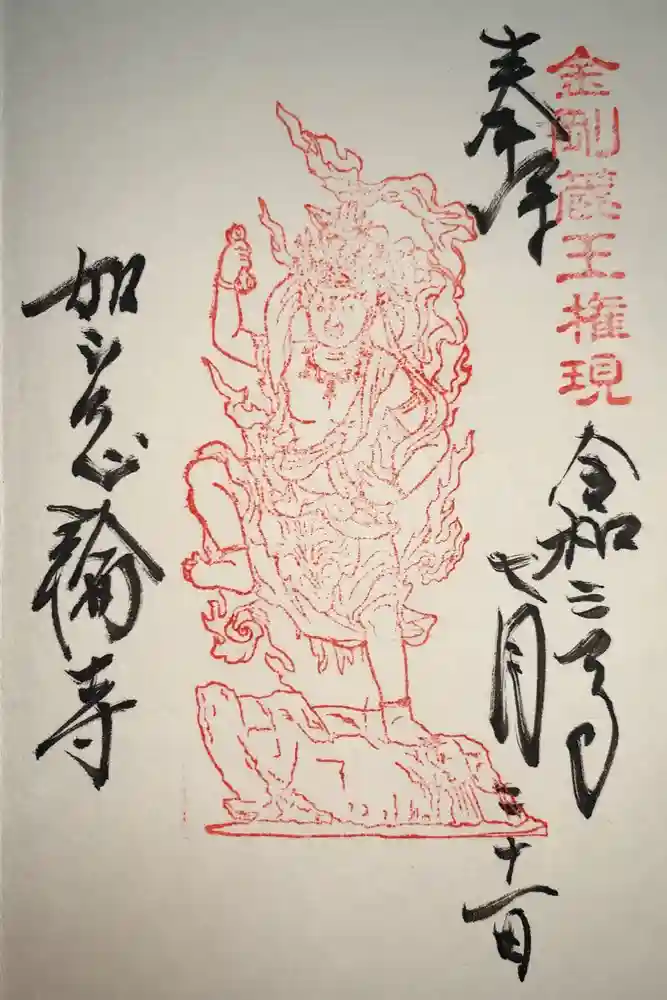 金剛蔵王権現
奉拝
令和二年
七月二十一日
如意輪寺